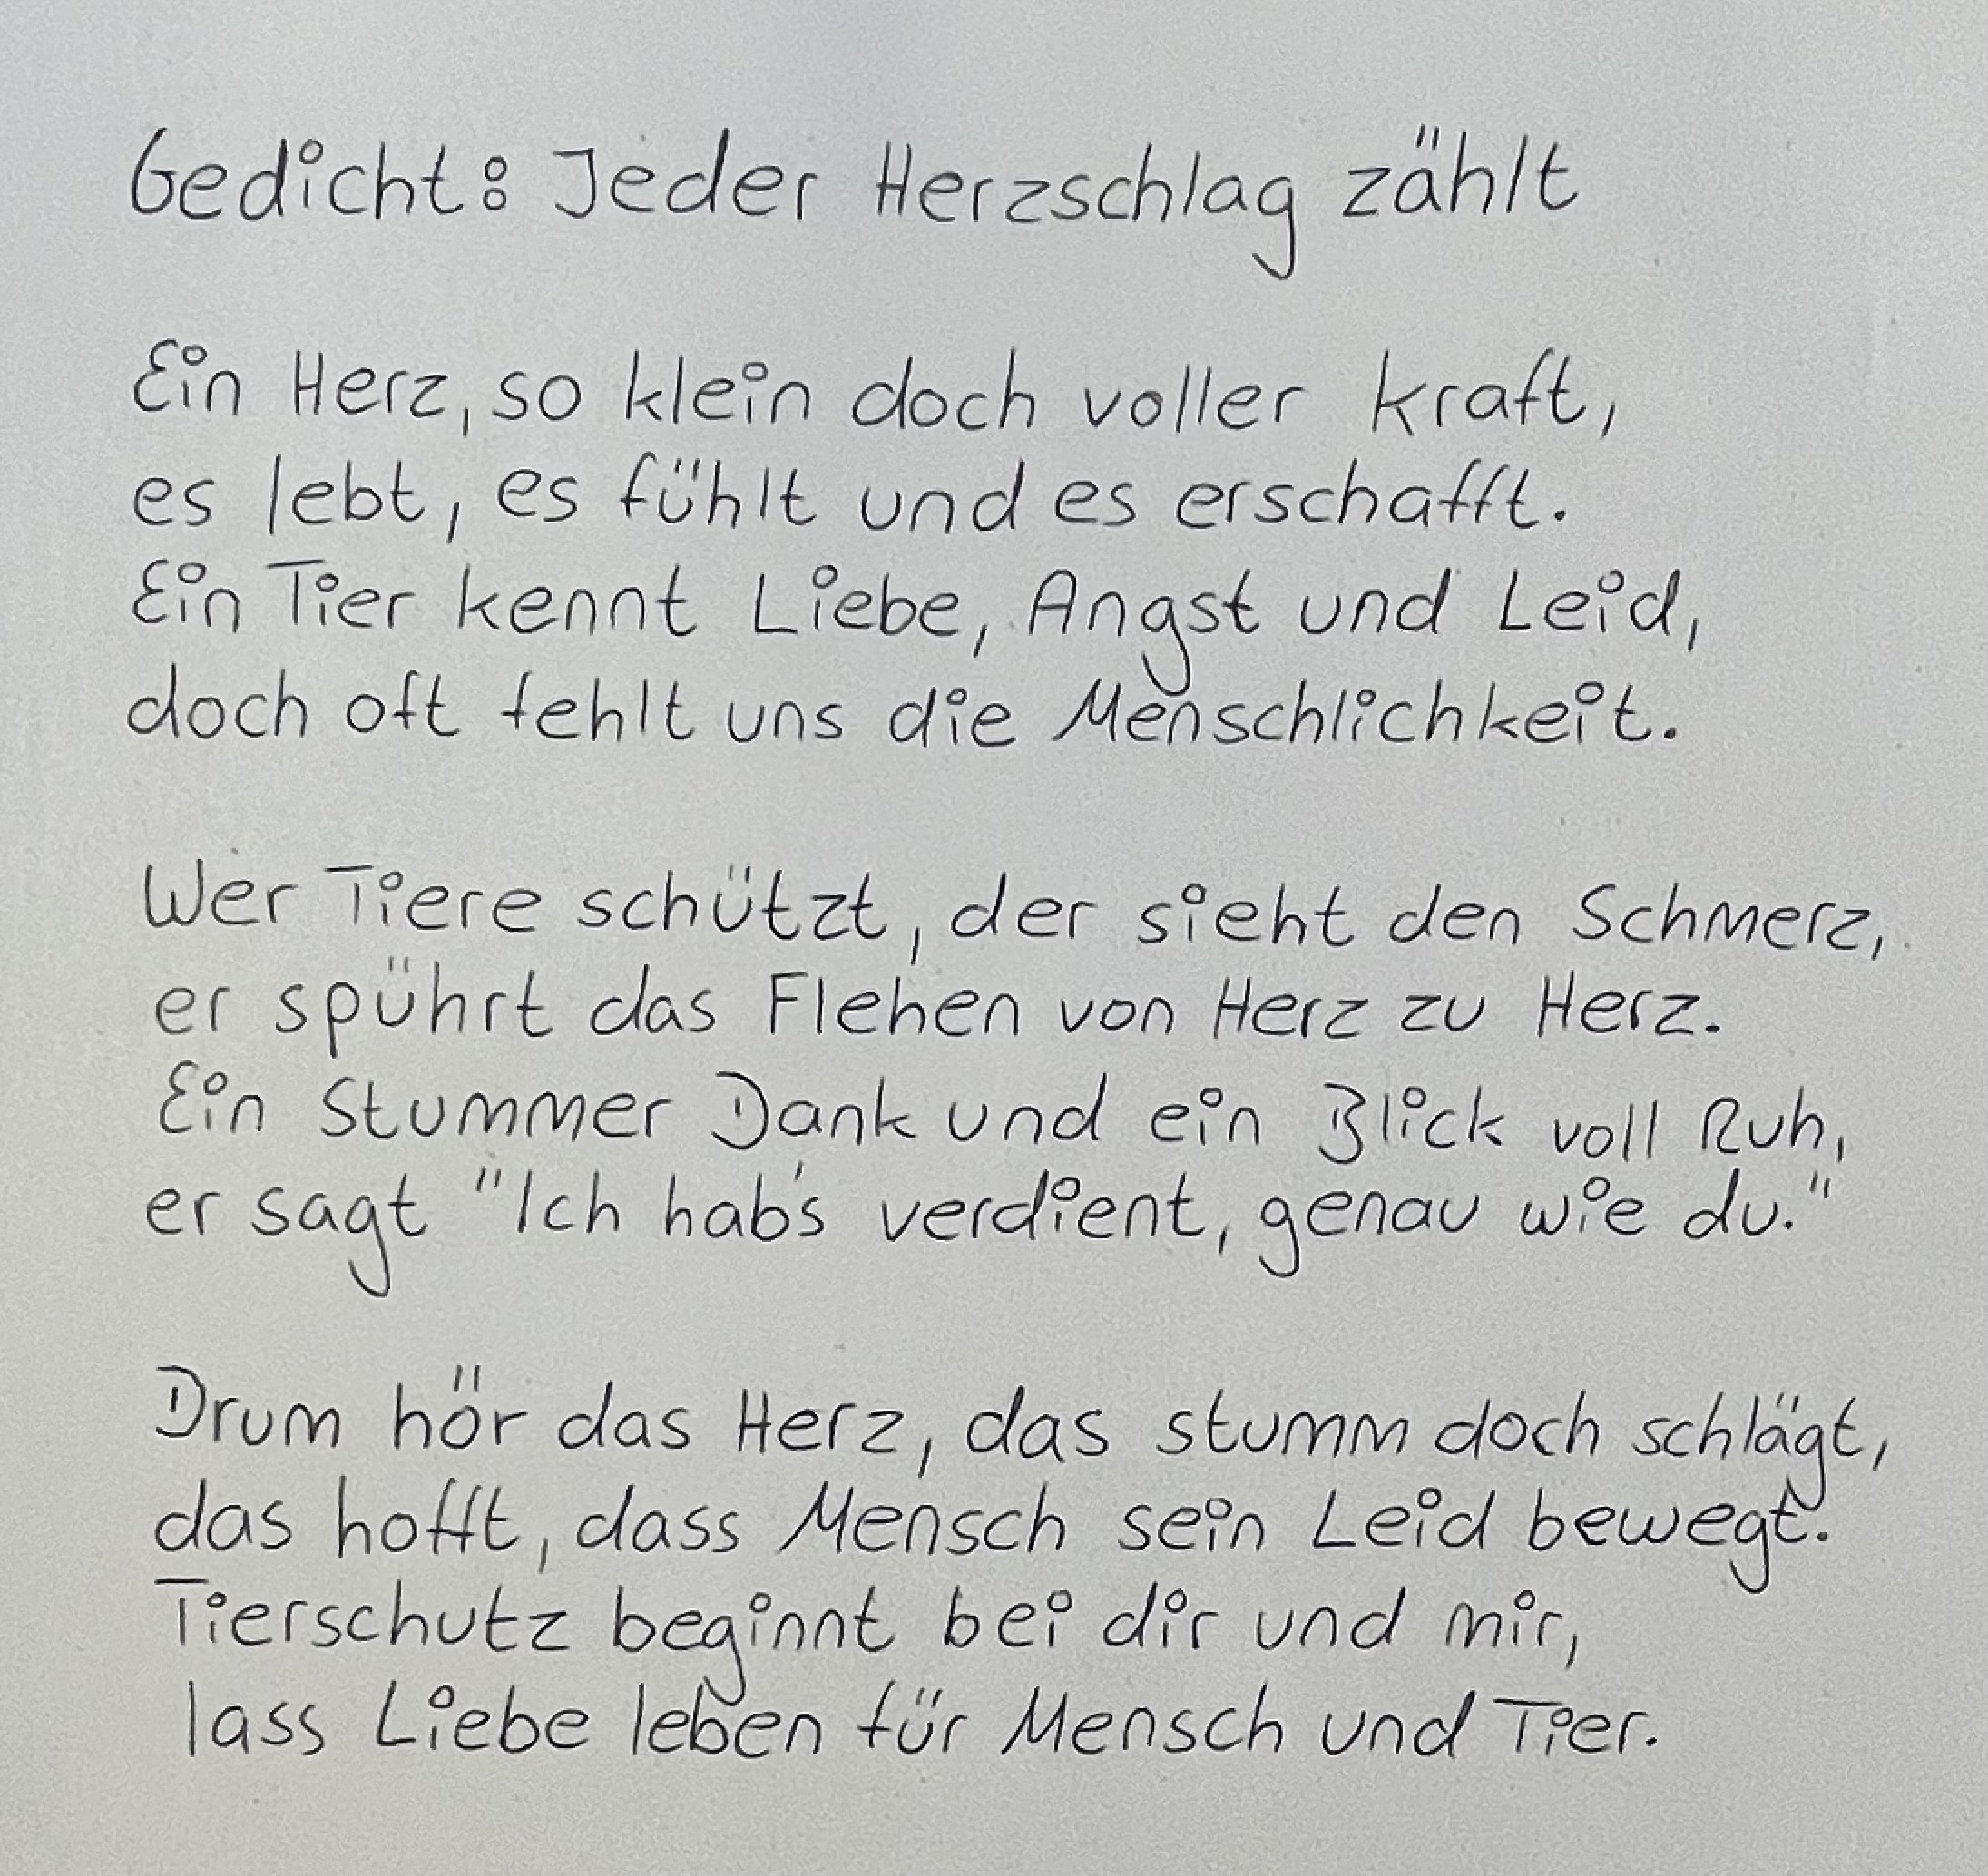 Gedicht: Jeder Herzschlag zählt
Ein Herz, so klein doch voller kraft,
es lebt, es fühlt und es erschafft.
Ein Tier kennt Liebe, Angst und Leid,
doch oft fehlt uns die Menschlichkeit.
Wer Tiere schützt, der sieht den Schmerz,
er spührt das Flehen von Herz zu Herz.
Ein Stummer Dank und ein Blick voll Ruh,
er sagt "Ich hab's verdient, genau wie du."
Drum hör das Herz, das stumm doch schlägt,
das hofft, dass Mensch sein Leid bewegt.
Tierschutz beginnt bei dir und mir,
lass Liebe leben für Mensch und Tier.